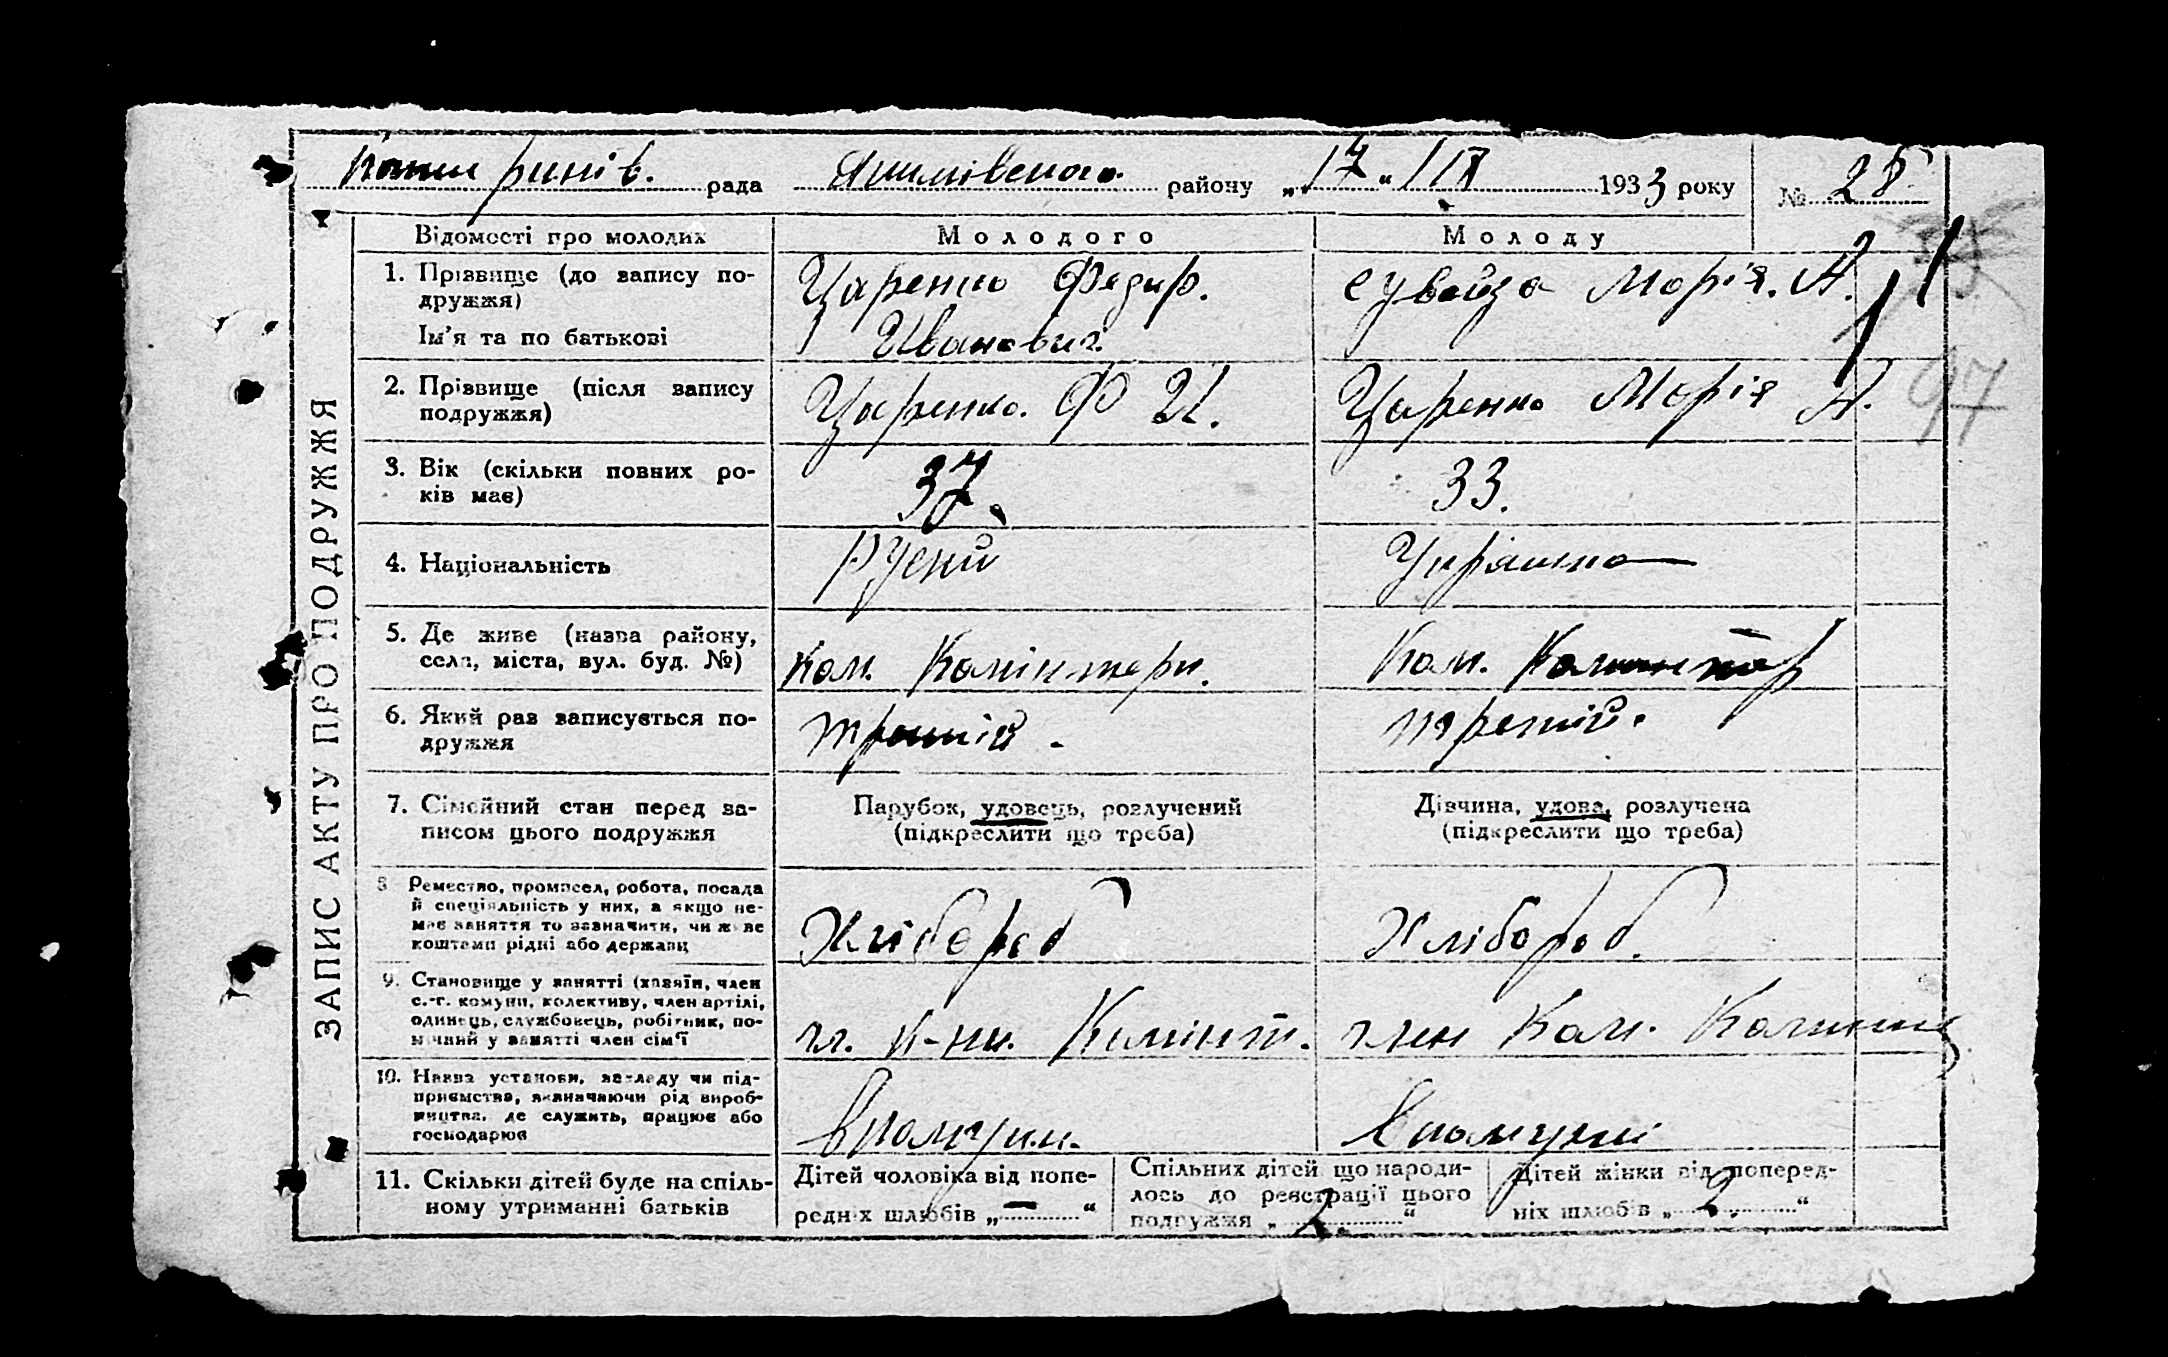 рада Якимівського району „17“ IX 1933 року № 28
ЗАПИС АКТУ ПРО ПОДРУЖЖЯ
Відомості про молодих Молодого Молоду
1. Прізвище (до запису по-
дружжя)
Ім'я та по батькові
Царенко Федир.
Иванович.
Марія. А.
2. Прізвище (після запису
подружжя)
Царенко Ф И.
Царенко Марія А.
97
3. Вік (скільки повних ро-
ків має)
37.
33.
4. Національність
Руский
Українка
5. Де живе (назва району,
села, міста, вул. буд. №)
Ком. Комінтерн.
Ком. Коминтер
6. Який раз записується по-
дружжя
третій.
третій.
7. Сімейний стан перед за-
писом цього подружжя
Парубок, удовець, розлучений
(підкреслити що треба)
Дівчина, удова, розлучена
(підкреслити що треба)
8 Ремество, промисел, робота, посада
й спеціяльність у них, а якщо не-
має заняття то зазначити, чи живе
коштами рідні або держави
Хлібороб
Хлібороб.
9. Становище у занятті (хазяїн, член
с.-г. комуни, колективу, член артілі,
одинець, службовець, робітник, по-
мічний у занятті член сім'ї
чл. к-ни. Комінт.
член Ком. Комминт
10. Назва установи, закладу чи під-
приємства, зазначаючи рід вироб-
ництва, де служить, працює або
господарює
вкомуни.
вкомуні
11. Скільки дітей буде на спіль-
ному утриманні батьків
Дітей чоловіка від попе-
редніх шлюбів „—“
Спільних дітей що народи-
лось до реєстрації цього
подружжя „2.“
Дітей жінки від поперед-
ніх шлюбів „2.“